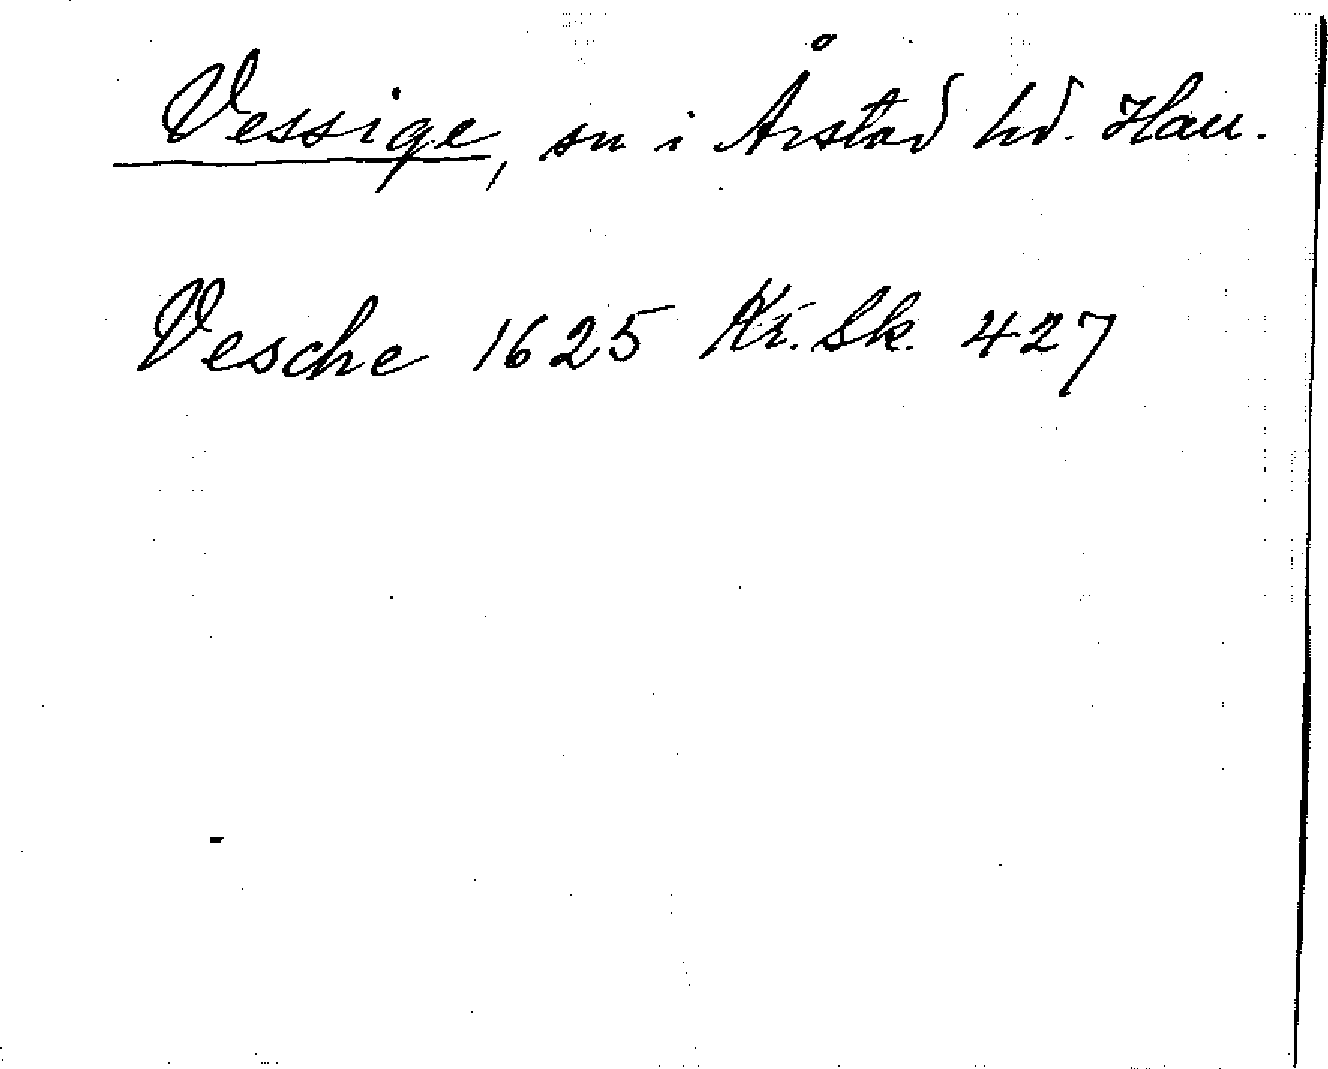 Vessige, sn i Årstad hd. Hall.
Vesche 1625 Kr. Sk. 427